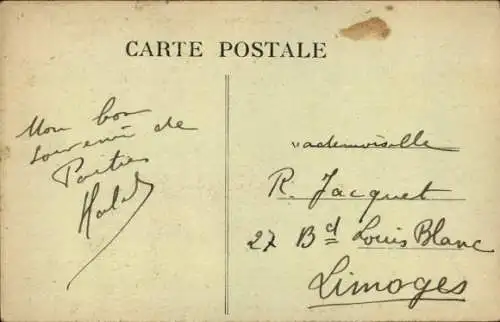 CARTE POSTALE
Mon bon
souvenir de
Poitiers
Mademoiselle
R. Jacquet
27 Bd Louis Blanc
Limoges